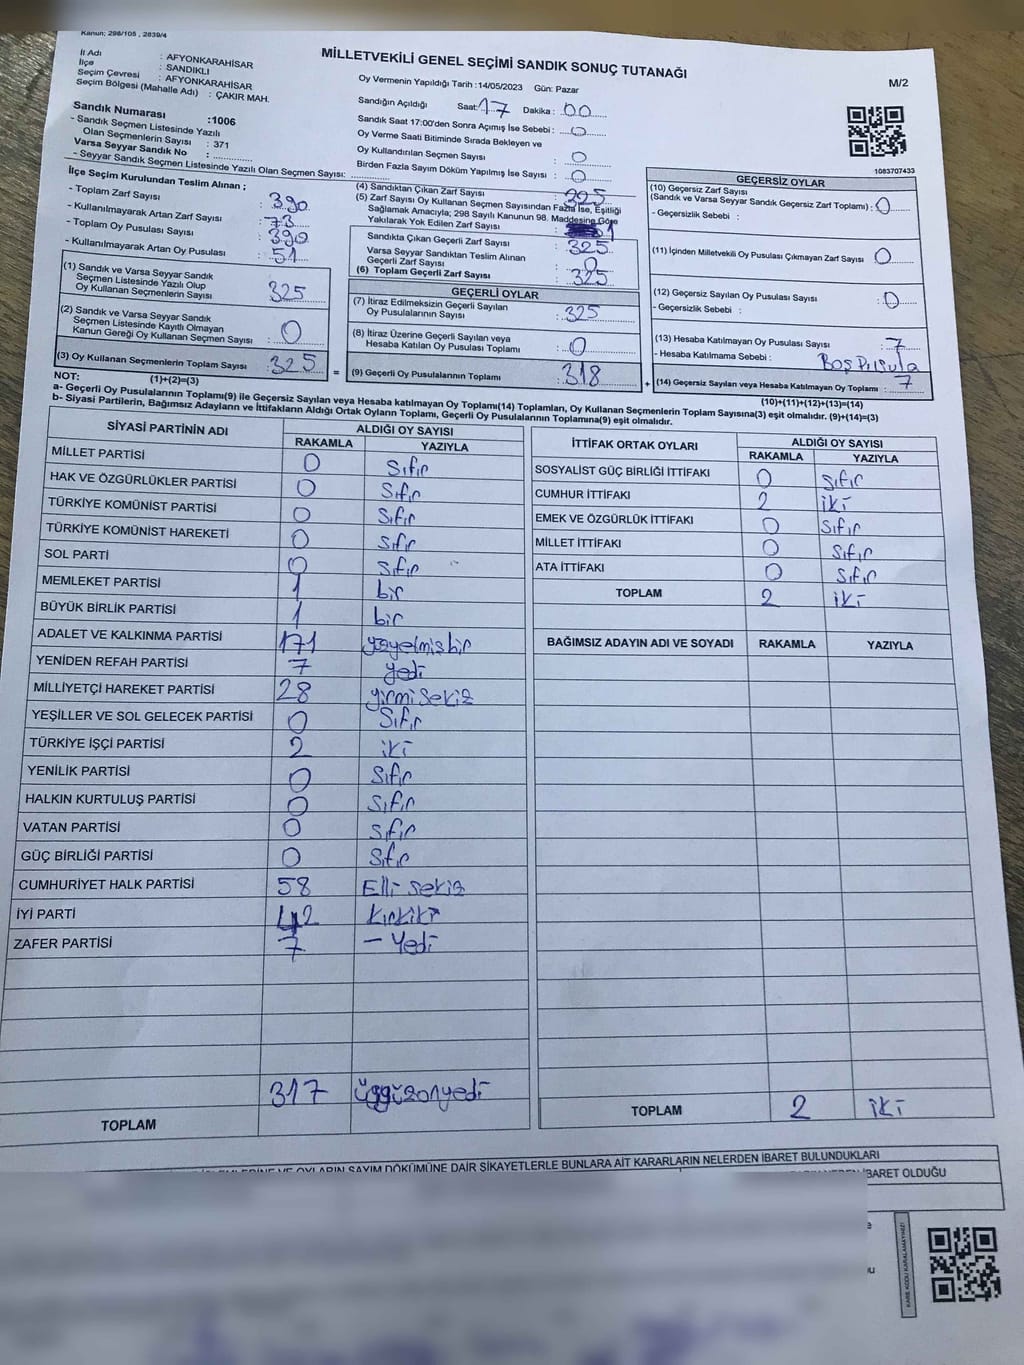 Kanun; 298/105 , 2839/4
MİLLETVEKİLİ GENEL SEÇİMİ SANDIK SONUÇ TUTANAĞI
M/2
İl Adı : AFYONKARAHİSAR
İlçe : SANDIKLI
Seçim Çevresi : AFYONKARAHİSAR
Seçim Bölgesi (Mahalle Adı) : ÇAKIR MAH.
Sandık Numarası :1006
- Sandık Seçmen Listesinde Yazılı
Olan Seçmenlerin Sayısı : 371
Varsa Seyyar Sandık No :
- Seyyar Sandık Seçmen Listesinde Yazılı Olan Seçmen Sayısı:
Oy Vermenin Yapıldığı Tarih :14/05/2023 Gün: Pazar
Sandığın Açıldığı Saat: 17 Dakika : 00
Sandık Saat 17:00'den Sonra Açımış İse Sebebi : 0
Oy Verme Saati Bitiminde Sırada Bekleyen ve
Oy Kullandırılan Seçmen Sayısı : 0
Birden Fazla Sayım Döküm Yapılmış İse Sayısı : 0
1083707433
İlçe Seçim Kurulundan Teslim Alınan ;
- Toplam Zarf Sayısı : 390
- Kullanılmayarak Artan Zarf Sayısı : 73
- Toplam Oy Pusulası Sayısı : 390
- Kullanılmayarak Artan Oy Pusulası : 51
(1) Sandık ve Varsa Seyyar Sandık
Seçmen Listesinde Yazılı Olup
Oy Kullanan Seçmenlerin Sayısı : 325
(2) Sandık ve Varsa Seyyar Sandık
Seçmen Listesinde Kayıtlı Olmayan
Kanun Gereği Oy Kullanan Seçmen Sayısı : 0
(3) Oy Kullanan Seçmenlerin Toplam Sayısı : 325
(4) Sandıktan Çıkan Zarf Sayısı : 325
(5) Zarf Sayısı Oy Kullanan Seçmen Sayısından Fazla İse, Eşitliği
Sağlamak Amacıyla; 298 Sayılı Kanunun 98. Maddesine Göre
Yakılarak Yok Edilen Zarf Sayısı :
Sandıkta Çıkan Geçerli Zarf Sayısı : 325
Varsa Seyyar Sandıktan Teslim Alınan
Geçerli Zarf Sayısı : 0
(6) Toplam Geçerli Zarf Sayısı : 325
GEÇERLİ OYLAR
(7) İtiraz Edilmeksizin Geçerli Sayılan
Oy Pusulalarının Sayısı : 325
(8) İtiraz Üzerine Geçerli Sayılan veya
Hesaba Katılan Oy Pusulası Toplamı : 0
= (9) Geçerli Oy Pusulalarının Toplamı : 318
GEÇERSİZ OYLAR
(10) Geçersiz Zarf Sayısı
(Sandık ve Varsa Seyyar Sandık Geçersiz Zarf Toplamı) : 0
- Geçersizlik Sebebi :
(11) İçinden Milletvekili Oy Pusulası Çıkmayan Zarf Sayısı : 0
(12) Geçersiz Sayılan Oy Pusulası Sayısı : 0
- Geçersizlik Sebebi :
(13) Hesaba Katılmayan Oy Pusulası Sayısı : 7
- Hesaba Katılmama Sebebi : Boş Pusula
+ (14) Geçersiz Sayılan veya Hesaba Katılmayan Oy Toplamı : 7
NOT: (1)+(2)=(3) (10)+(11)+(12)+(13)=(14)
a- Geçerli Oy Pusulalarının Toplamı(9) ile Geçersiz Sayılan veya Hesaba katılmayan Oy Toplamı(14) Toplamları, Oy Kullanan Seçmenlerin Toplam Sayısına(3) eşit olmalıdır. (9)+(14)=(3)
b- Siyasi Partilerin, Bağımsız Adayların ve İttifakların Aldığı Ortak Oyların Toplamı, Geçerli Oy Pusulalarının Toplamına(9) eşit olmalıdır.
SİYASİ PARTİNİN ADI ALDIĞI OY SAYISI
RAKAMLA YAZIYLA
MİLLET PARTİSİ 0 Sıfır
HAK VE ÖZGÜRLÜKLER PARTİSİ 0 Sıfır
TÜRKİYE KOMÜNİST PARTİSİ 0 Sıfır
TÜRKİYE KOMÜNİST HAREKETİ 0 Sıfır
SOL PARTİ 0 Sıfır
MEMLEKET PARTİSİ 1 bir
BÜYÜK BİRLİK PARTİSİ 1 bir
ADALET VE KALKINMA PARTİSİ 171 yüzyetmişbir
YENİDEN REFAH PARTİSİ 7 yedi
MİLLİYETÇİ HAREKET PARTİSİ 28 yirmisekiz
YEŞİLLER VE SOL GELECEK PARTİSİ 0 Sıfır
TÜRKİYE İŞÇİ PARTİSİ 2 iki
YENİLİK PARTİSİ 0 Sıfır
HALKIN KURTULUŞ PARTİSİ 0 Sıfır
VATAN PARTİSİ 0 Sıfır
GÜÇ BİRLİĞİ PARTİSİ 0 Sıfır
CUMHURİYET HALK PARTİSİ 58 Elli sekiz
İYİ PARTİ 42 kırkiki
ZAFER PARTİSİ 7 – Yedi
317 üçyüzonyedi
TOPLAM
İTTİFAK ORTAK OYLARI ALDIĞI OY SAYISI
RAKAMLA YAZIYLA
SOSYALİST GÜÇ BİRLİĞİ İTTİFAKI 0 Sıfır
CUMHUR İTTİFAKI 2 iki
EMEK VE ÖZGÜRLÜK İTTİFAKI 0 Sıfır
MİLLET İTTİFAKI 0 Sıfır
ATA İTTİFAKI 0 Sıfır
TOPLAM 2 iki
BAĞIMSIZ ADAYIN ADI VE SOYADI RAKAMLA YAZIYLA
TOPLAM 2 iki
OYLARIN SAYIM DÖKÜMÜNE DAİR ŞİKAYETLERLE BUNLARA AİT KARARLARIN NELERDEN İBARET BULUNDUKLARI
İBARET OLDUĞU
KARE KODU KARALAMAYINIZ!